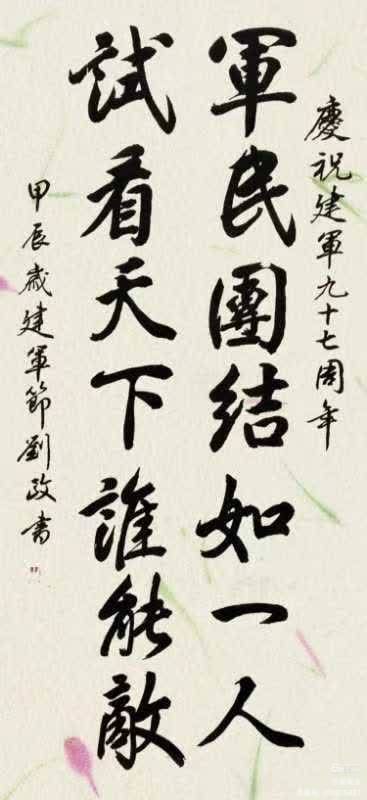 慶祝建軍九十七周年
軍民團結如一人
試看天下誰能敵
甲辰歲建軍節劉政書